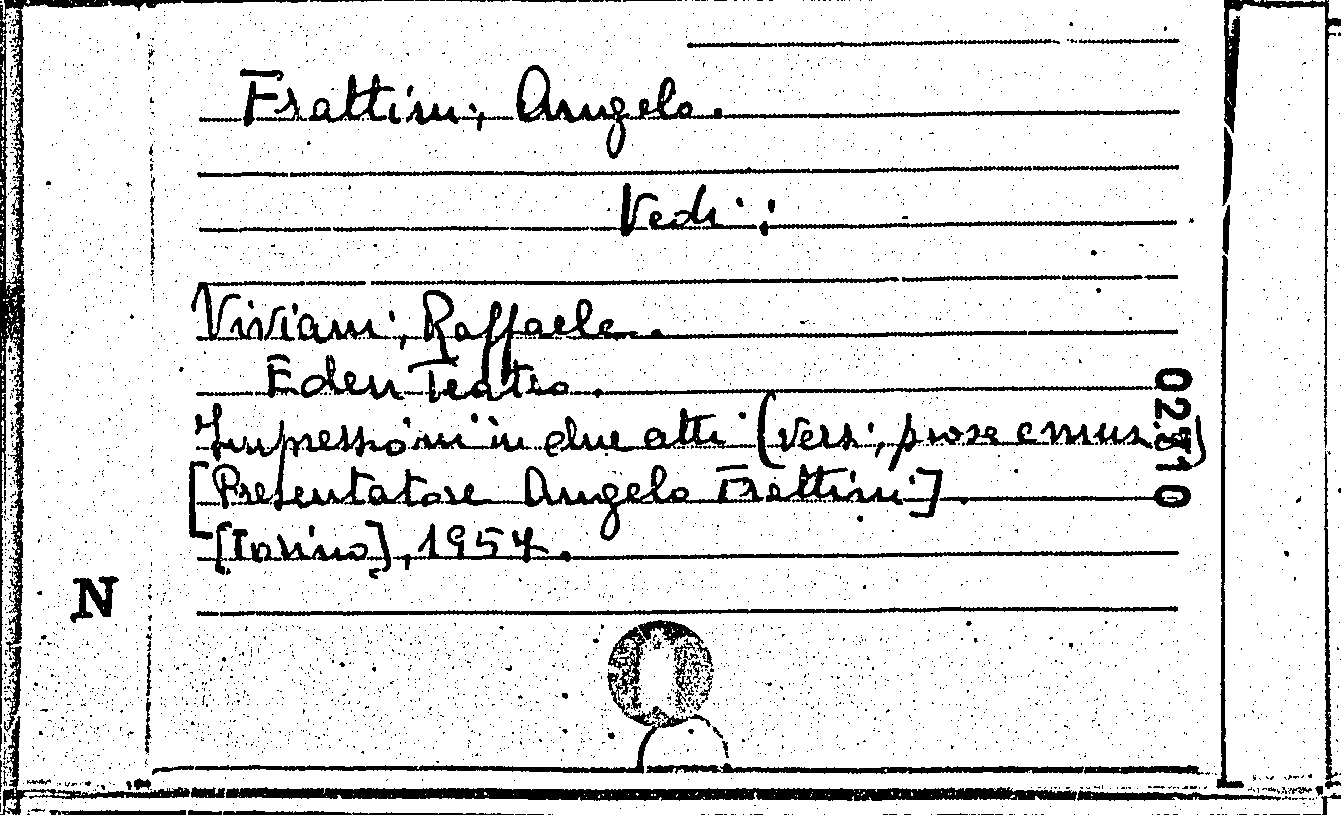 Frattini, Angelo.
Vedi:
Viviani, Raffaele.
Eden Teatro.
Impressioni in due atti (versi, prose e mus.)
[Presentatore Angelo Frattini].
[Torino], 1957.
N